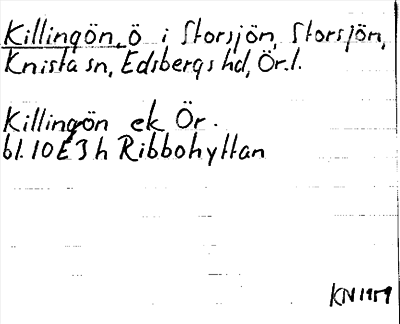 Killingön, ö i Storsjön, Storsjön,
Knista sn, Edsbergs hd, Ör.l.
Killingön ek Ör.
bl. 10E3h Ribbohyttan
KN 1959